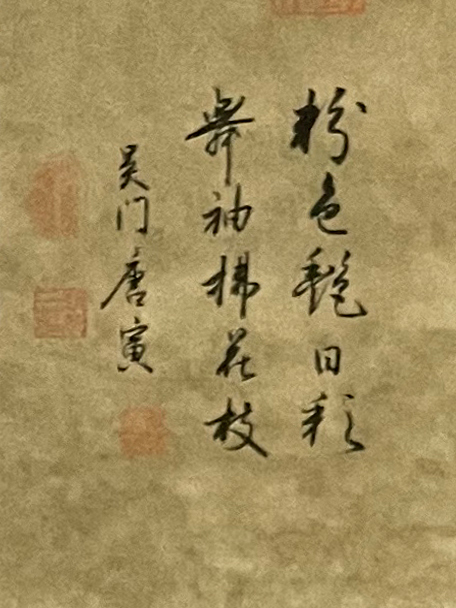 粉色艷日彩
舞袖拂花枝
吴门唐寅